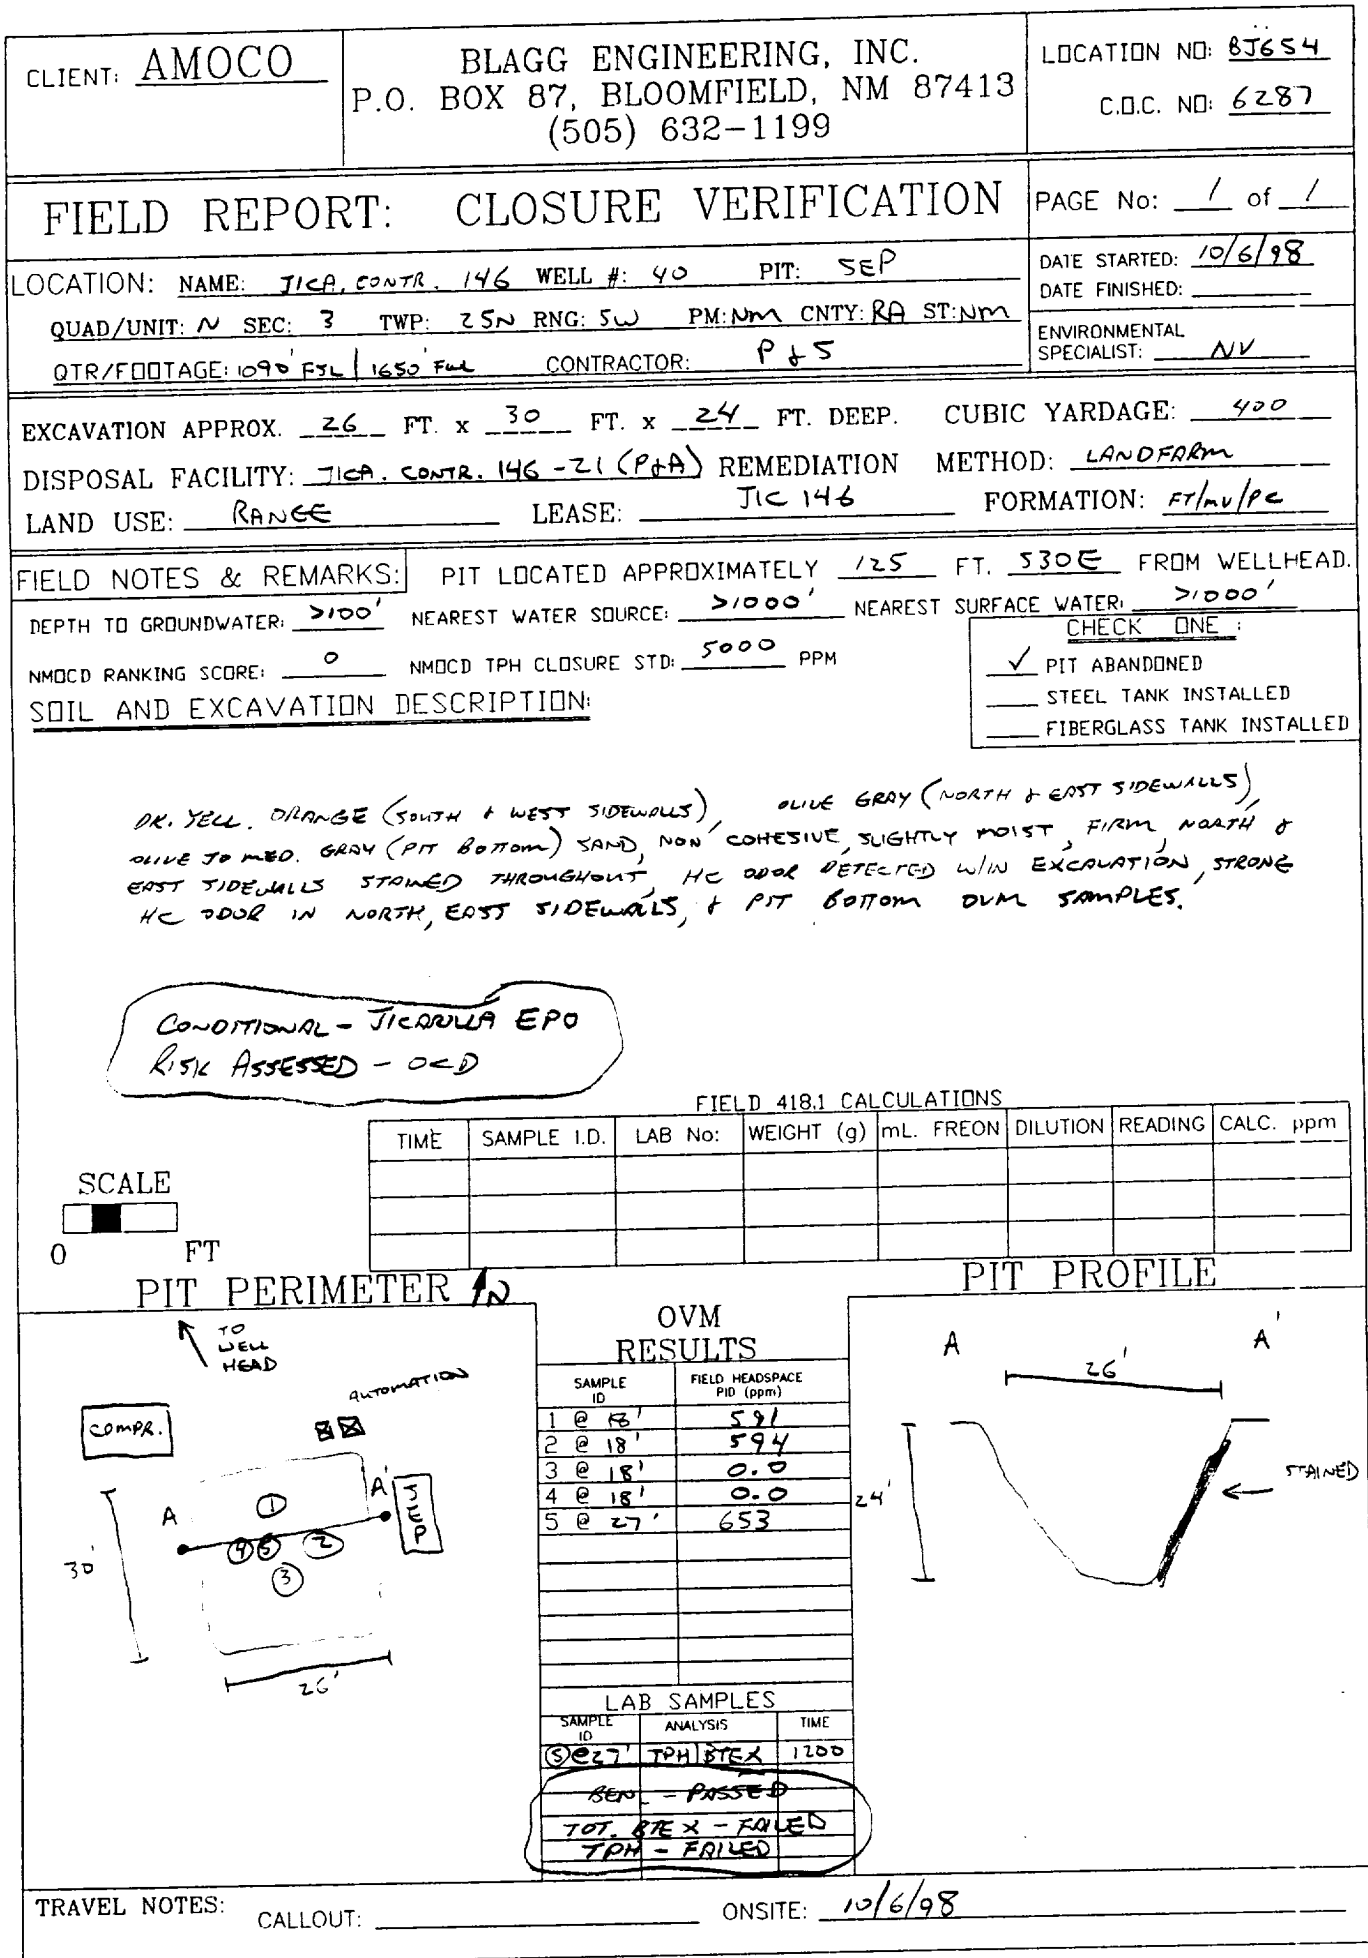 CLIENT: AMOCO
BLAGG ENGINEERING, INC.
P.O. BOX 87, BLOOMFIELD, NM 87413
(505) 632-1199
LOCATION NO: BJ654
C.O.C. NO: 6287
FIELD REPORT: CLOSURE VERIFICATION
PAGE No: 1 of 1
LOCATION: NAME: JICA. CONTR. 146 WELL #: 40 PIT: SEP
QUAD/UNIT: N SEC: 3 TWP: 25N RNG: 5W PM: NM CNTY: RA ST: NM
QTR/FOOTAGE: 1090' FSL / 1650' FWL CONTRACTOR: P & S
DATE STARTED: 10/6/98
DATE FINISHED:
ENVIRONMENTAL
SPECIALIST: NV
EXCAVATION APPROX. 26 FT. x 30 FT. x 24 FT. DEEP. CUBIC YARDAGE: 400
DISPOSAL FACILITY: JICA. CONTR. 146-21 (P&A) REMEDIATION METHOD: LANDFARM
LAND USE: RANGE LEASE: JIC 146 FORMATION: FT/MV/PC
FIELD NOTES & REMARKS: PIT LOCATED APPROXIMATELY 125 FT. S30E FROM WELLHEAD.
DEPTH TO GROUNDWATER: >100' NEAREST WATER SOURCE: >1000' NEAREST SURFACE WATER: >1000'
NMOCD RANKING SCORE: 0 NMOCD TPH CLOSURE STD: 5000 PPM
CHECK ONE :
✓ PIT ABANDONED
STEEL TANK INSTALLED
FIBERGLASS TANK INSTALLED
SOIL AND EXCAVATION DESCRIPTION:
DK. YELL. ORANGE (SOUTH & WEST SIDEWALLS), OLIVE GRAY (NORTH & EAST SIDEWALLS),
OLIVE TO MED. GRAY (PIT BOTTOM) SAND, NON COHESIVE, SLIGHTLY MOIST, FIRM, NORTH &
EAST SIDEWALLS STAINED THROUGHOUT, HC ODOR DETECTED W/IN EXCAVATION, STRONG
HC ODOR IN NORTH, EAST SIDEWALLS, & PIT BOTTOM OVM SAMPLES.
CONDITIONAL - JICARILLA EPO
RISK ASSESSED - OCD
FIELD 418.1 CALCULATIONS
TIME SAMPLE I.D. LAB No: WEIGHT (g) mL. FREON DILUTION READING CALC. ppm
SCALE
0 FT
PIT PERIMETER N
TO
WELL
HEAD
AUTOMATION
COMPR.
A A'
SEP
1
4 5 2
3
30'
26'
OVM
RESULTS
SAMPLE ID FIELD HEADSPACE PID (ppm)
1 @ 18' 591
2 @ 18' 594
3 @ 18' 0.0
4 @ 18' 0.0
5 @ 27' 653
LAB SAMPLES
SAMPLE ID ANALYSIS TIME
5 @ 27' TPH/BTEX 1200
BEN. - PASSED
TOT. BTEX - FAILED
TPH - FAILED
PIT PROFILE
A A'
26'
24'
STAINED
TRAVEL NOTES: CALLOUT: ONSITE: 10/6/98